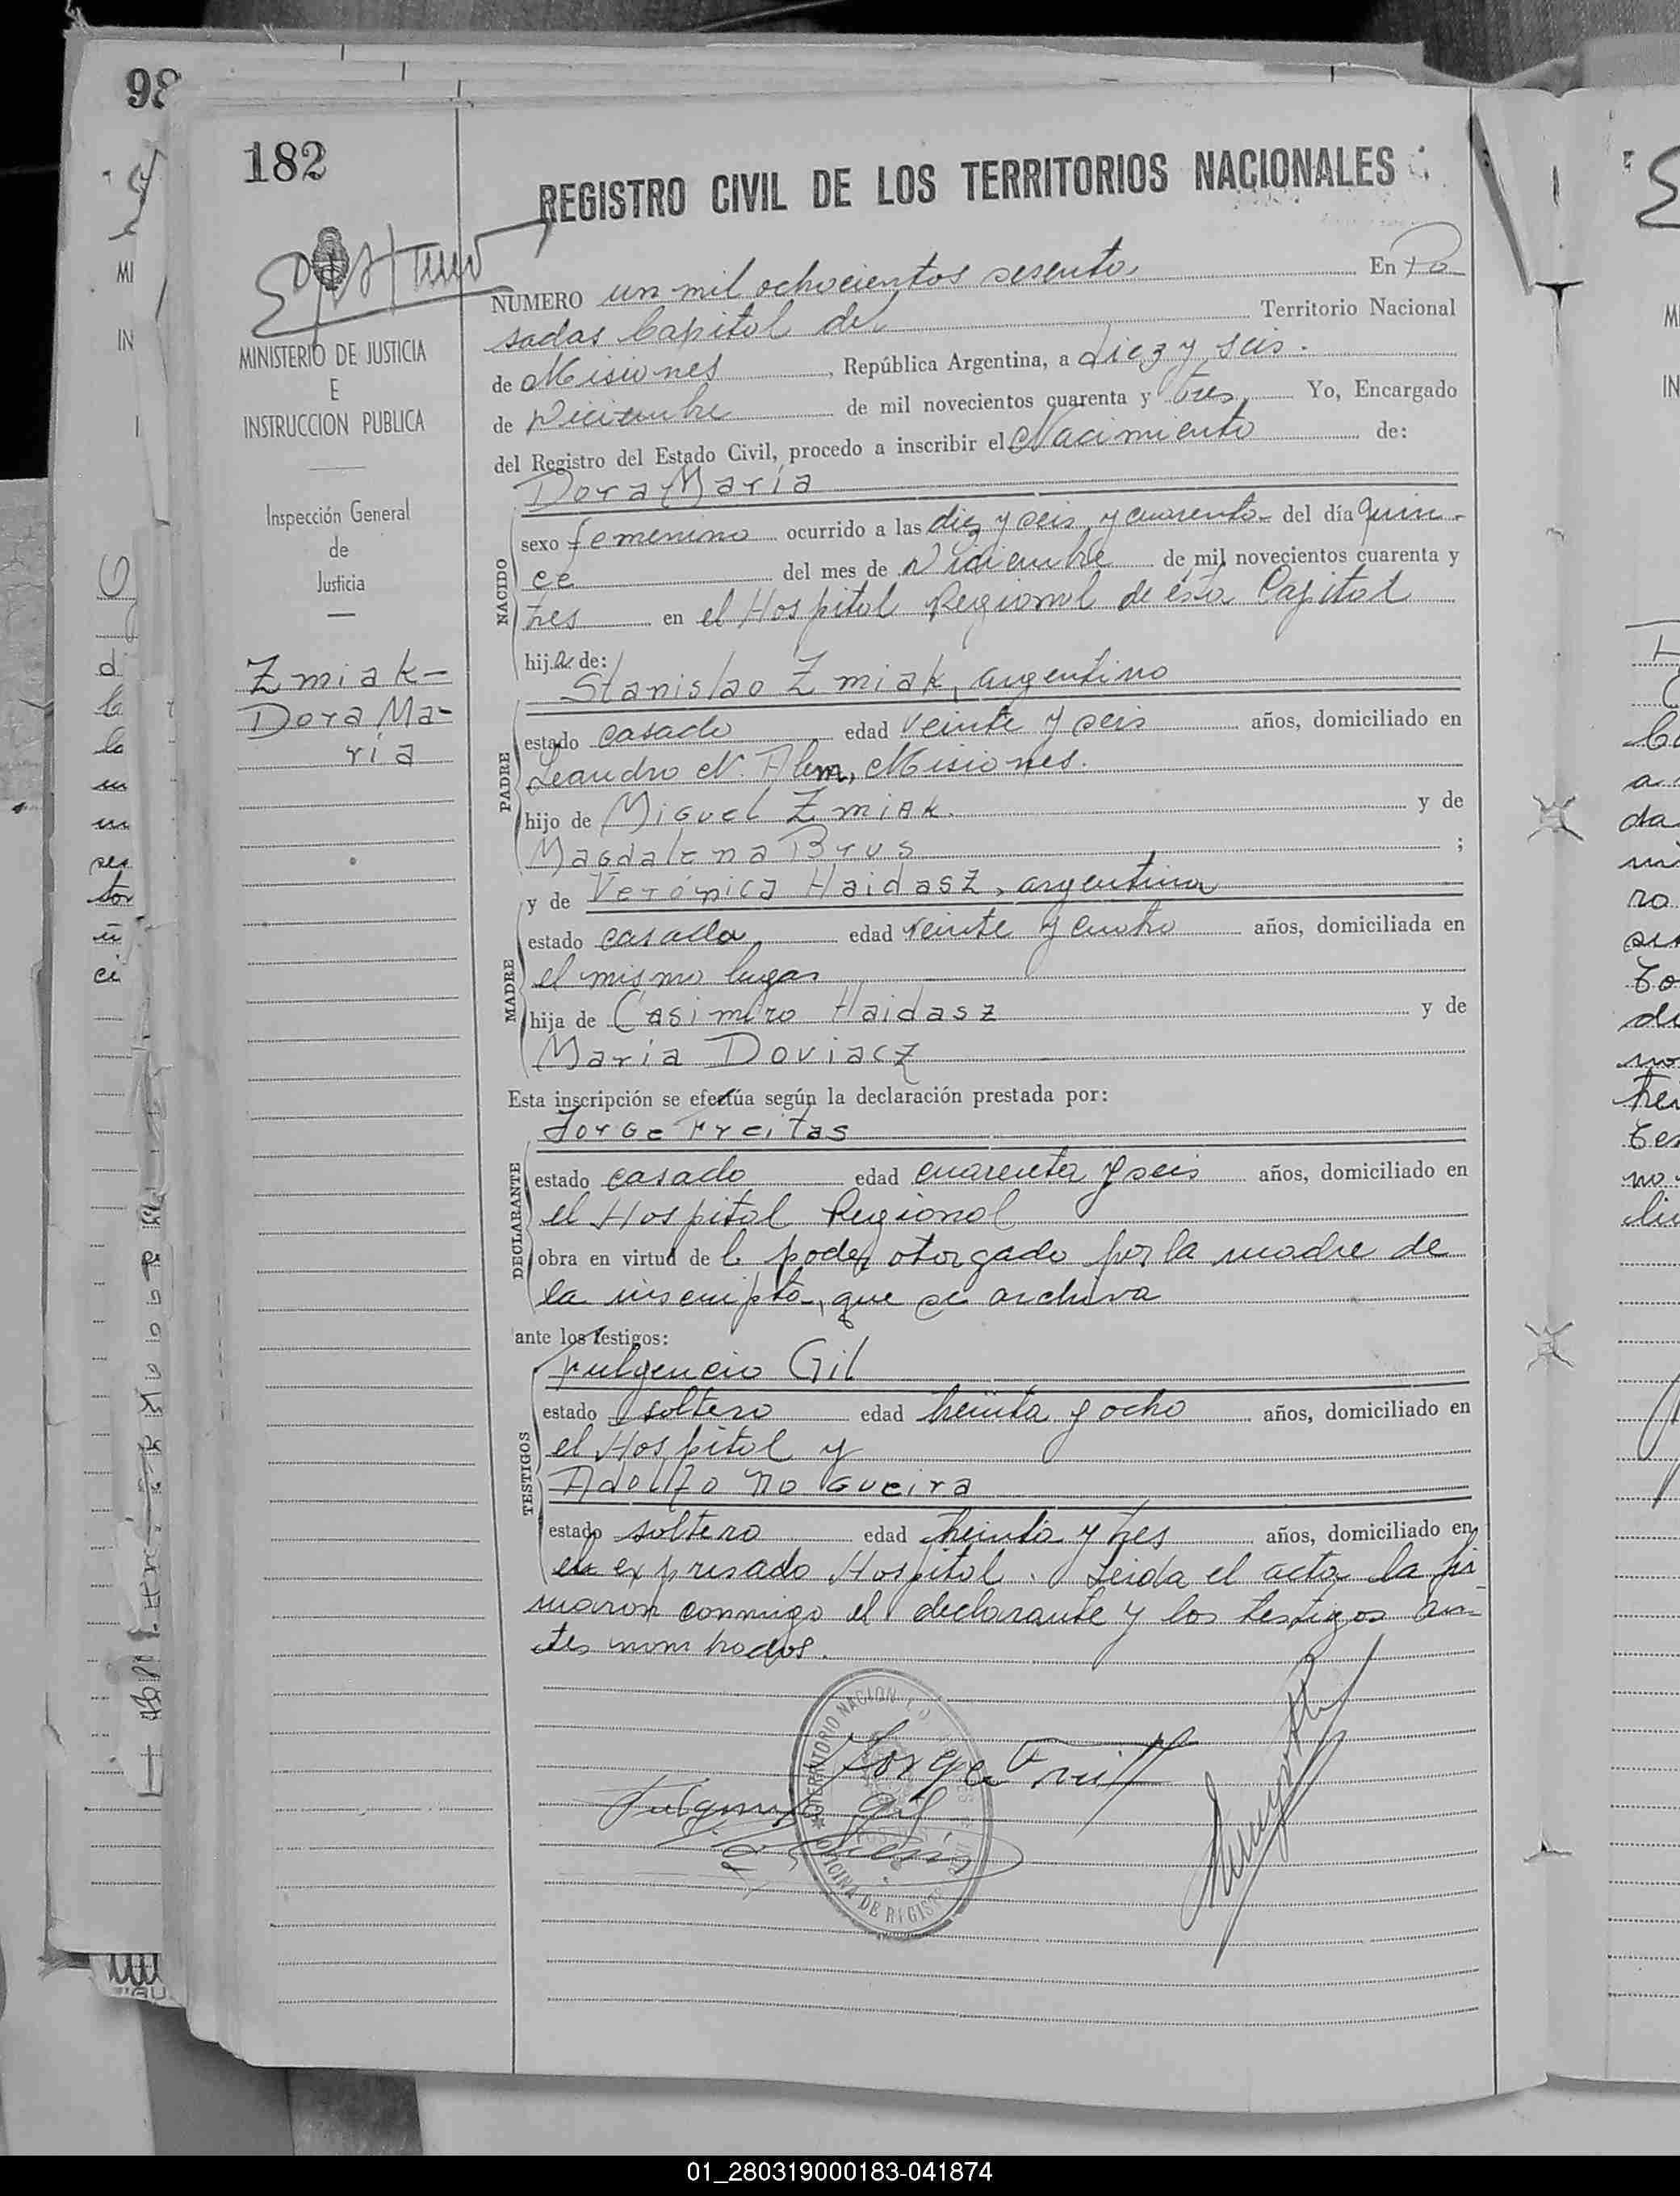 98
182
REGISTRO CIVIL DE LOS TERRITORIOS NACIONALES
MINISTERIO DE JUSTICIA
E
INSTRUCCION PUBLICA
Inspección General
de
Justicia
Zmiak-
Dora Ma-
ría
NUMERO un mil ochocientos sesenta En Po
sadas Capital del Territorio Nacional
de Misiones, República Argentina, a diez y seis.
de Diciembre de mil novecientos cuarenta y tres, Yo, Encargado
del Registro del Estado Civil, procedo a inscribir el Nacimiento de:
Dora María
NACIDO
sexo femenino ocurrido a las diez y seis y cuarenta del día quin-
ce del mes de Diciembre de mil novecientos cuarenta y
tres en el Hospital Regional de ésta Capital
hija de:
Stanislao Zmiak, argentino
PADRE
estado casado edad veinte y seis años, domiciliado en
Leandro N. Alem, Misiones.
hijo de Miguel Zmiak. y de
Magdalena Brus ;
y de Verónica Haidasz, argentina
MADRE
estado casada edad veinte y cuatro años, domiciliada en
el mismo lugar
hija de Casimiro Haidasz y de
María Doviacz
Esta inscripción se efectúa según la declaración prestada por:
Jorge Freitas
DECLARANTE
estado casado edad cuarenta y seis años, domiciliado en
el Hospital Regional
obra en virtud de poder otorgado por la madre de
la inscripta, que se archiva
ante los testigos:
Fulgencio Gil
TESTIGOS
estado soltero edad treinta y ocho años, domiciliado en
el Hospital y
Adolfo Nogueira
estado soltero edad treinta y tres años, domiciliado en
el expresado Hospital. Leida el acta la fir
maron conmigo el declarante y los testigos an-
tes nombrados.
TERRITORIO NACION
Jorge Freit
Fulgencio Gil
OFICINA DE REGIST
01_280319000183-041874